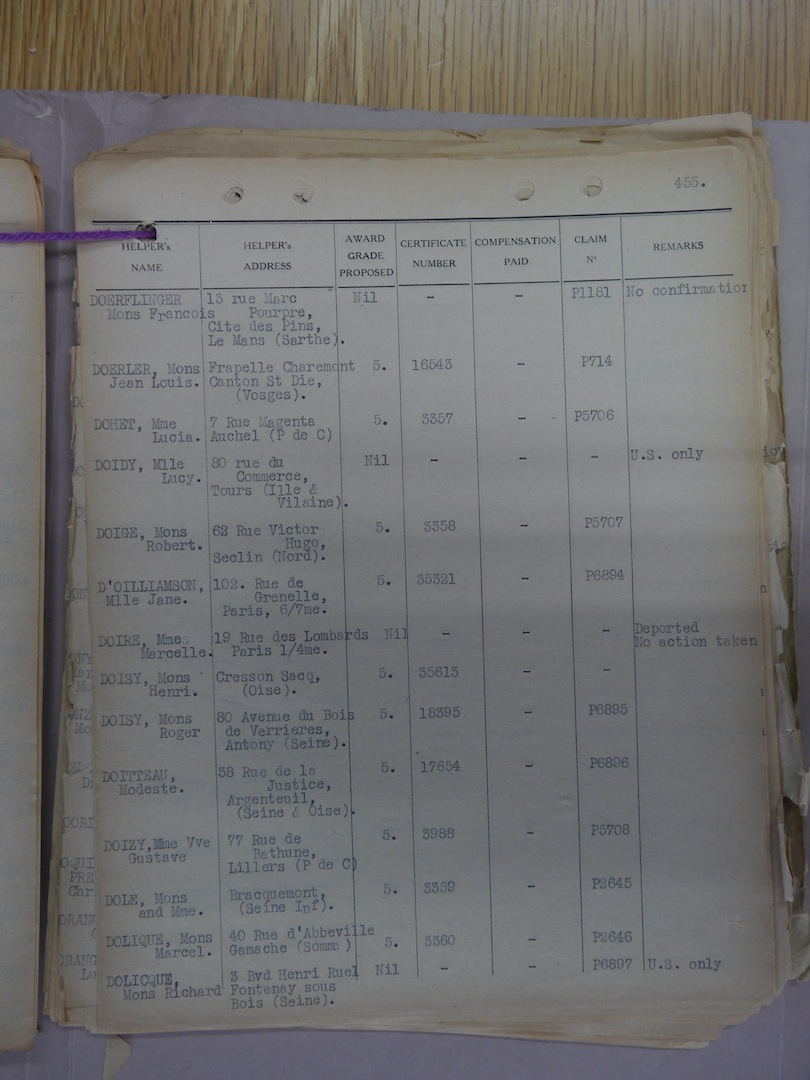 455.
HELPER's NAME HELPER's ADDRESS AWARD GRADE PROPOSED CERTIFICATE NUMBER COMPENSATION PAID CLAIM N° REMARKS
DOERFLINGER 13 rue Marc Nil - - P1181 No confirmation
Mons Francois Pourpre,
Cite des Pins,
Le Mans (Sarthe).
DOERLER, Mons Frapelle Charemont 5. 16543 - P714
Jean Louis. Canton St Die,
(Vosges).
DOHET, Mme 7 Rue Magenta 5. 3357 - P5706
Lucia. Auchel (P de C)
DOIDY, Mlle 80 rue du Nil - - - U.S. only
Lucy. Commerce,
Tours (Ille &
Vilaine).
DOIGE, Mons 62 Rue Victor 5. 3358 - P5707
Robert. Hugo,
Seclin (Nord).
D'OILLIAMSON, 102. Rue de 5. 35321 - P6894
Mlle Jane. Grenelle,
Paris, 6/7me.
DOIRE, Mme 19 Rue des Lombards Nil - - - Deported
Marcelle. Paris 1/4me. No action taken
DOISY, Mons Cresson Sacq, 5. 35613 - -
Henri. (Oise).
DOISY, Mons 80 Avenue du Bois 5. 18395 - P6895
Roger de Verrieres,
Antony (Seine).
DOITTEAU, 38 Rue de la 5. 17654 - P6896
Modeste. Justice,
Argenteuil,
(Seine & Oise).
DOIZY, Mme Vve 77 Rue de 5. 3988 - P5708
Gustave Bathune,
Lillers (P de C)
DOLE, Mons Bracquemont, 5. 3359 - P2645
and Mme. (Seine Inf).
DOLIQUE, Mons 40 Rue d'Abbeville 5. 3360 - P2646
Marcel. Gamache (Somme)
DOLICQUE, 3 Bvd Henri Ruel Nil - - P6897 U.S. only
Mons Richard Fontenay sous
Bois (Seine).